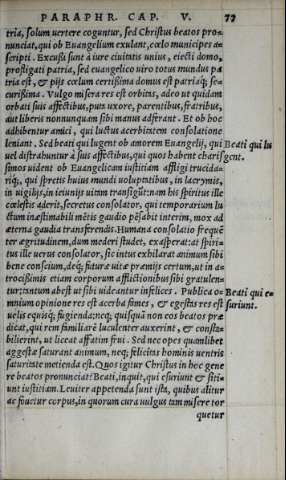 PARAPHR. CAP. V. 77
tria, solum uertere coguntur, sed Christus beatos pro=
nunciat, qui ob Euangelium exulant, cœlo municipes a=
scripti. Excussi sunt à iure ciuitatis unius, eiecti domo,
profligati patria, sed euangelico uiro totus mundus pa
tria est, & pijs cœlum certissima domus est patriaq́; se=
curissima. Vulgo misera res est orbitas, adeo ut quidam
orbati suis affectibus, puta uxore, parentibus, fratribus,
aut liberis nonnunquam sibi manus adferant. Et ob hoc
adhibentur amici, qui luctus acerbitatem consolatione
leniant. Sed beati qui lugent ob amorem Euangelij, qui
Beati qui lu
uel distrahuntur à suis affectibus, qui quos habent charis
gent.
simos uident ob Euangelicam iustitiam affligi trucida=
riq́;, qui spretis huius mundi uoluptatibus, in lacrymis,
in uigilijs, in ieiunijs uitam transigūt: nam his spiritus ille
cœlestis aderit, secretus consolator, qui temporarium lu
ctum inæstimabili mētis gaudio pēsabit interim, mox ad
æterna gaudia transferendis. Humana consolatio frequē
ter ægritudinem, dum mederi studet, exasperat: at spiri=
tus ille uerus consolator, sic intus exhilarat animum sibi
bene conscium, deq́; futuræ uitæ præmijs certum, ut in a=
trocissimis etiam corporum afflictionibus sibi gratulen=
tur, tantum abest ut sibi uideantur infelices. Publica o=
Beati qui e=
mnium opinione res est acerba fames, & egestas res est
suriunt.
uelis equisq́; fugienda: neq́; quisquā non eos beatos præ
dicat, qui rem familiarē luculenter auxerint, & consta=
bilierint, ut liceat affatim frui. Sed nec opes quamlibet
aggestæ saturant animum, neq́; felicitas hominis uentris
saturitate metienda est. Quos igitur Christus in hoc gene
re beatos pronunciat? Beati, inquit, qui esuriunt & siti=
unt iustitiam. Leuiter appetenda sunt ista, quibus alitur
ac fouetur corpus, in quorum cura uulgus tam misere tor
quetur